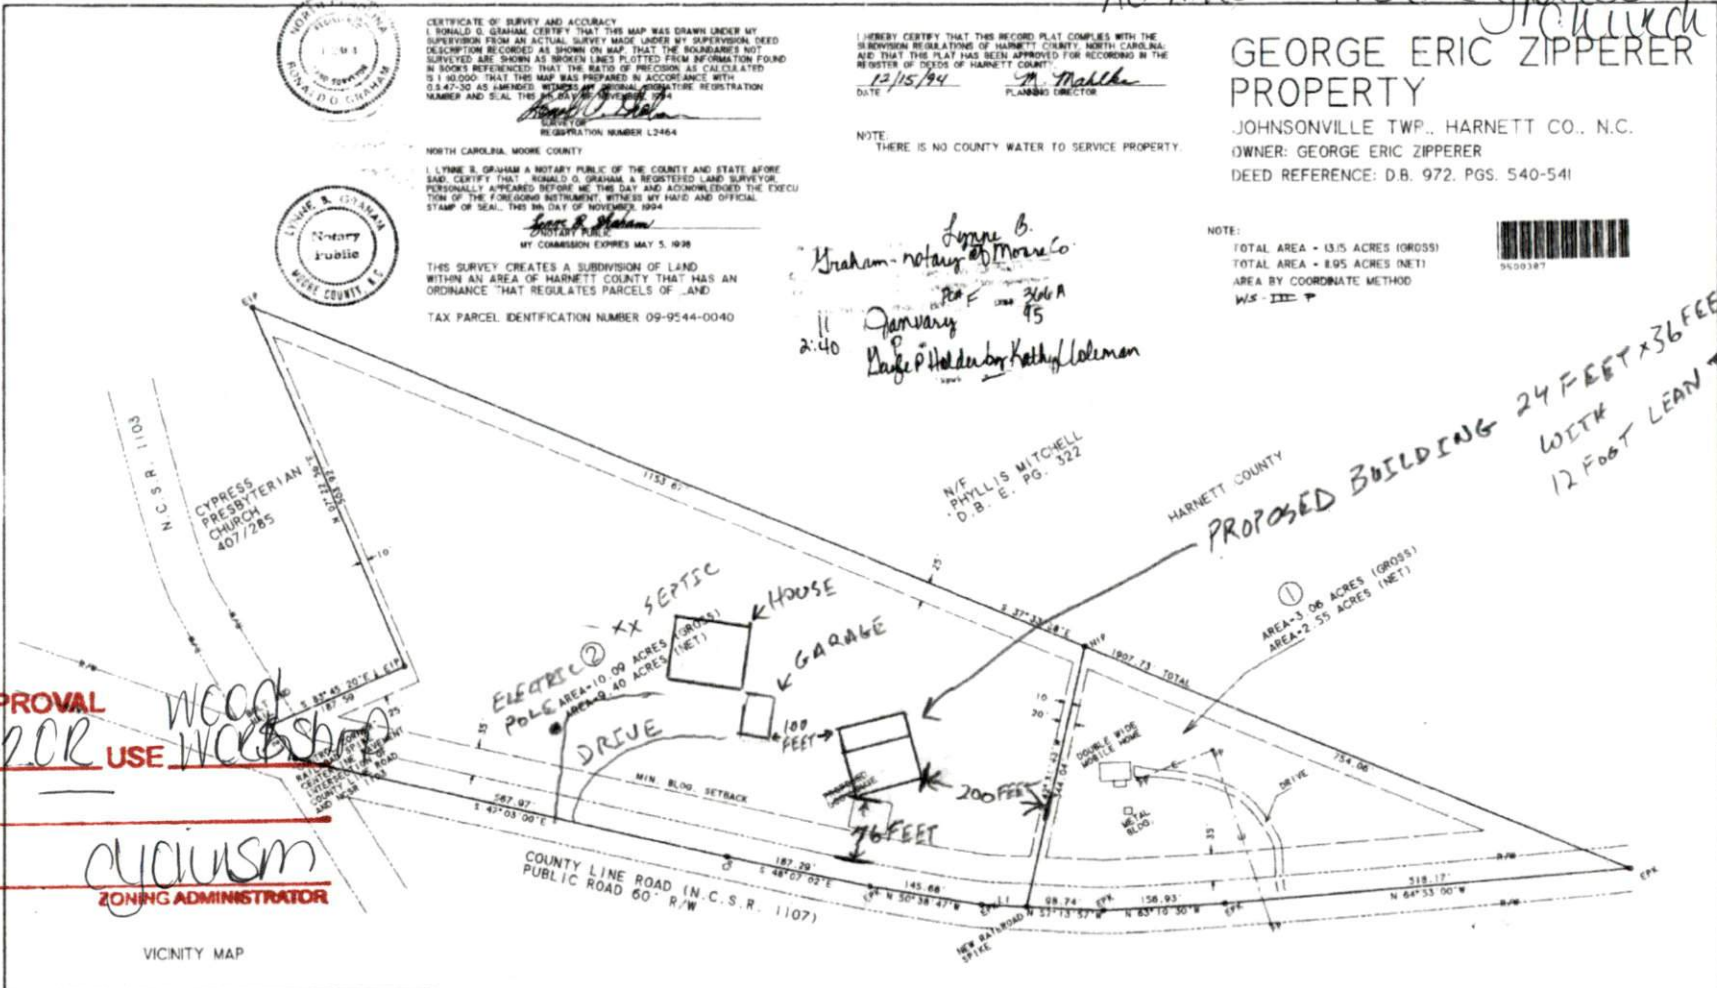 NORTH CAROLINA
RONALD O. GRAHAM
CERTIFICATE OF SURVEY AND ACCURACY
I, RONALD O. GRAHAM, CERTIFY THAT THIS MAP WAS DRAWN UNDER MY
SUPERVISION FROM AN ACTUAL SURVEY MADE UNDER MY SUPERVISION, DEED
DESCRIPTION RECORDED AS SHOWN ON MAP, THAT THE BOUNDARIES NOT
SURVEYED ARE SHOWN AS BROKEN LINES PLOTTED FROM INFORMATION FOUND
IN BOOKS REFERENCED; THAT THE RATIO OF PRECISION AS CALCULATED
IS 1:10,000; THAT THIS MAP WAS PREPARED IN ACCORDANCE WITH
G.S.47-30 AS AMENDED. WITNESS MY ORIGINAL SIGNATURE REGISTRATION
NUMBER AND SEAL THIS DAY OF NOVEMBER, 1994
SURVEYOR
REGISTRATION NUMBER L2464
NORTH CAROLINA, MOORE COUNTY
I, LYNNE B. GRAHAM A NOTARY PUBLIC OF THE COUNTY AND STATE AFORE
SAID, CERTIFY THAT, RONALD O. GRAHAM, A REGISTERED LAND SURVEYOR,
PERSONALLY APPEARED BEFORE ME THIS DAY AND ACKNOWLEDGED THE EXECU
TION OF THE FOREGOING INSTRUMENT. WITNESS MY HAND AND OFFICIAL
STAMP OR SEAL, THIS DAY OF NOVEMBER, 1994
Lynne B. Graham
NOTARY PUBLIC
MY COMMISSION EXPIRES MAY 5, 1998
LYNNE B. GRAHAM
Notary
Public
MOORE COUNTY, N.C.
THIS SURVEY CREATES A SUBDIVISION OF LAND
WITHIN AN AREA OF HARNETT COUNTY THAT HAS AN
ORDINANCE THAT REGULATES PARCELS OF LAND
TAX PARCEL IDENTIFICATION NUMBER 09-9544-0040
I HEREBY CERTIFY THAT THIS RECORD PLAT COMPLIES WITH THE
SUBDIVISION REGULATIONS OF HARNETT COUNTY, NORTH CAROLINA;
AND THAT THIS PLAT HAS BEEN APPROVED FOR RECORDING IN THE
REGISTER OF DEEDS OF HARNETT COUNTY.
12/15/94 M. Mahlke
DATE PLANNING DIRECTOR
NOTE:
THERE IS NO COUNTY WATER TO SERVICE PROPERTY.
Lynne B.
Graham - notary of Moore Co
PCA F 366A
11 January 95
2:40 P
Gayle P Holder by Kathy Coleman
Church
GEORGE ERIC ZIPPERER
PROPERTY
JOHNSONVILLE TWP., HARNETT CO., N.C.
OWNER: GEORGE ERIC ZIPPERER
DEED REFERENCE: D.B. 972, PGS. 540-541
NOTE:
TOTAL AREA = 13.15 ACRES (GROSS)
TOTAL AREA = 11.95 ACRES (NET)
AREA BY COORDINATE METHOD
WS-III P
9500387
PROPOSED BUILDING 24 FEET x 36 FEE
WITH
12 FOOT LEAN T
EIP
N.C.S.R. 1103
CYPRESS
PRESBYTERIAN
CHURCH
407/285
10
1153.67
N/F
PHYLLIS MITCHELL
D.B. E, PG. 322
HARNETT COUNTY
25
S 37°33'58"E
NIP
1907.73' TOTAL
754.06
1
AREA=3.06 ACRES (GROSS)
AREA=2.55 ACRES (NET)
XX SEPTIC
HOUSE
GARAGE
ELECTRIC
POLE
2
AREA=10.09 ACRES (GROSS)
AREA=9.40 ACRES (NET)
DRIVE
100
FEET
200 FEET
76 FEET
MIN. BLDG. SETBACK
35
10
20
DOUBLE WIDE
MOBILE HOME
METAL
BLDG.
DRIVE
PP
35
R/W
EIP
S 83°45'20"E
187.59
25
PROVAL
USE
ZONING ADMINISTRATOR
567.97'
S 47°03'00"E
187.29'
S 48°07'02"E
145.66'
N 50°38'47"W
EPK
98.74'
N 57°13'57"W
EPK
156.93'
N 63°10'30"W
EPK
518.17'
N 64°53'00"W
R/W
EPK
COUNTY LINE ROAD (N.C.S.R. 1107)
PUBLIC ROAD 60' R/W
NEW RAILROAD
SPIKE
PP
VICINITY MAP